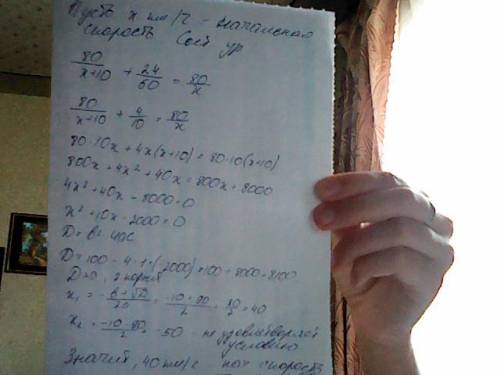 Пусть x км/ч - начальная
скорость Сост ур
80/(x+10) + 24/60 = 80/x
80/(x+10) + 4/10 = 80/x
80·10x + 4x(x+10) = 80·10(x+10)
800x + 4x² + 40x = 800x + 8000
4x² + 40x - 8000 = 0
x² + 10x - 2000 = 0
D = b² - 4ac
D = 100 - 4·1·(-2000) = 100 + 8000 = 8100
D>0, 2 корня
x₁ = (-b+√D)/2a = (-10+90)/2 = 80/2 = 40
x₂ = (-10-90)/2 = -50 - не удовлетворяет
условию
Значит, 40 км/ч нач скорость